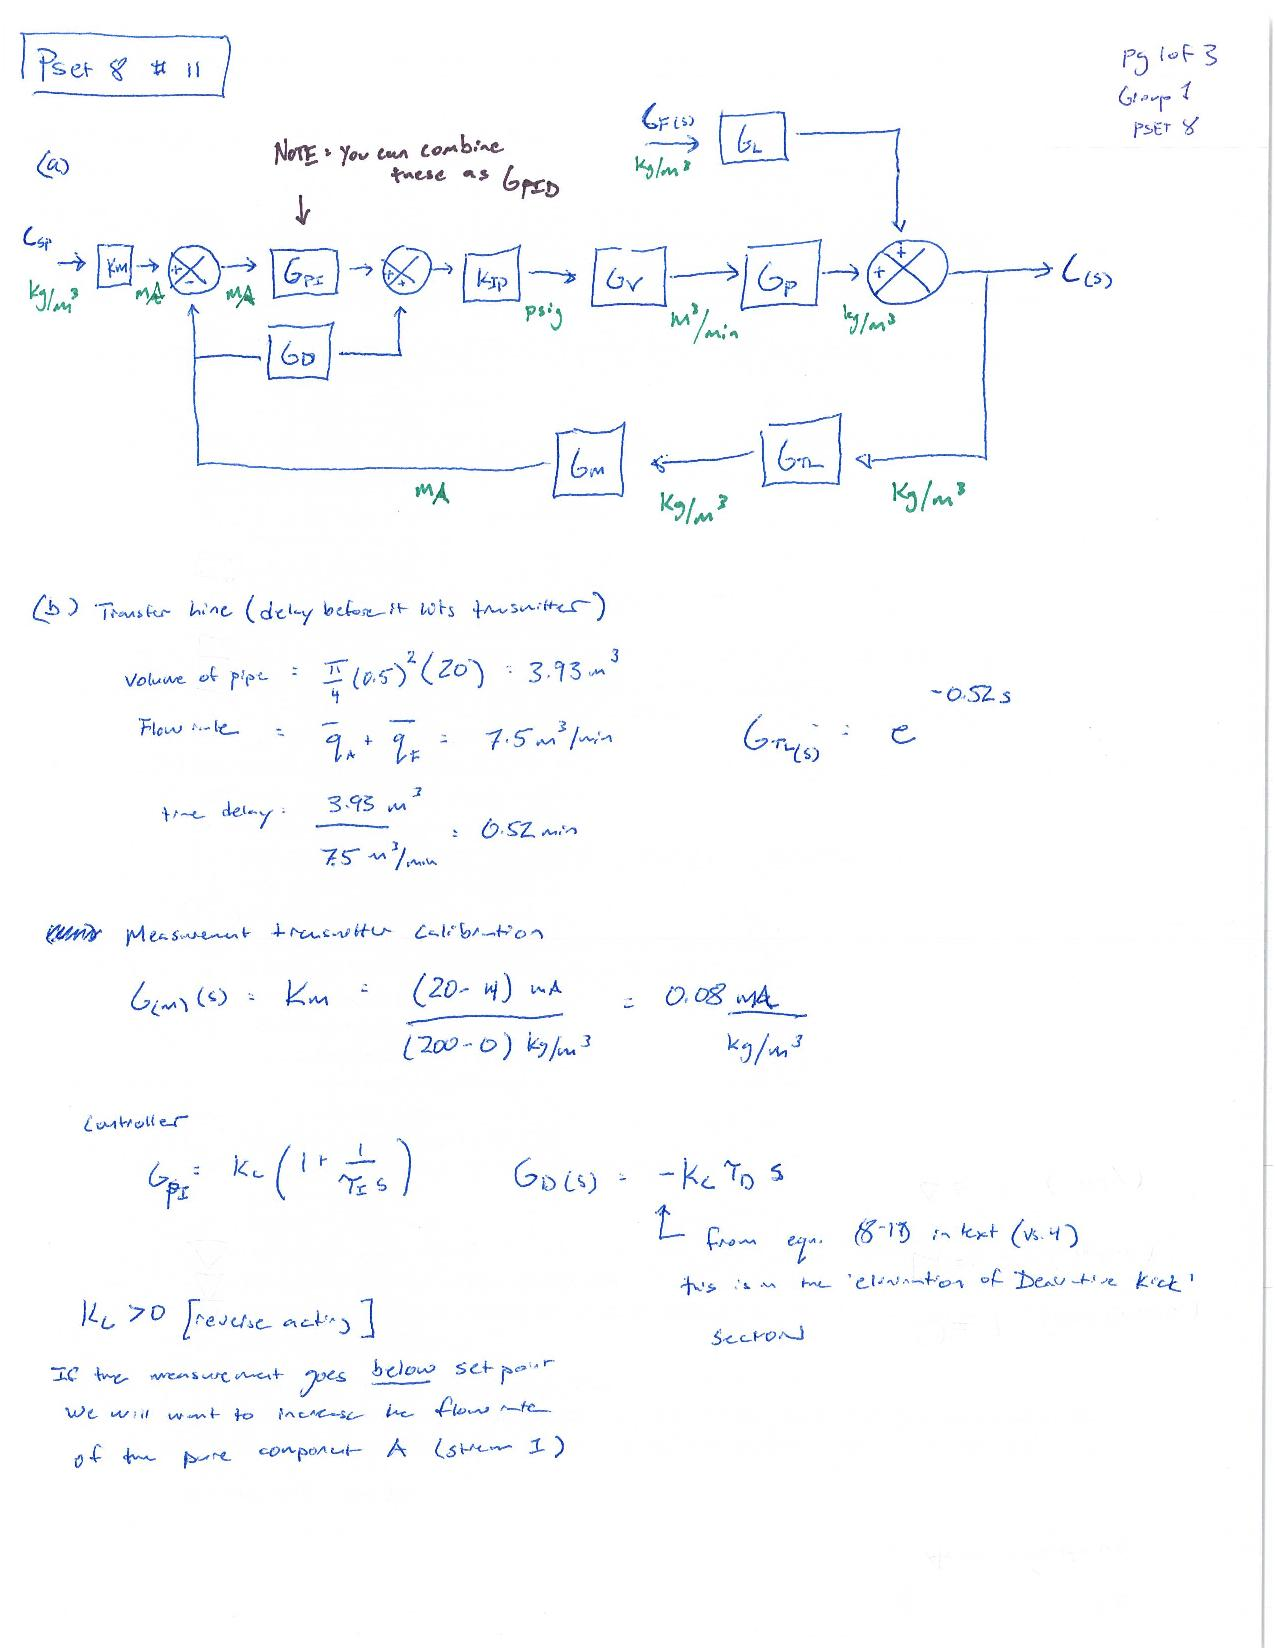 Pset 8 # 11
pg 1 of 3
Group 1
PSET 8
(a)
NOTE: You can combine
these as GPID
GF(s)
kg/m³
GL
Csp
kg/m³
KM
MA
+
-
MA
GPI
+
+
KIP
psig
GV
M³/min
Gp
kg/m³
+
+
C(s)
GD
GM
GTL
MA
Kg/m³
Kg/m³
(b) Transfer line (delay before it hits transmitter)
Volume of pipe = π/4 (0.5)² (20) = 3.93 m³
Flow rate = q̄A + q̄F = 7.5 m³/min
GTL(s) = e^-0.52s
time delay: 3.93 m³ / 7.5 m³/min = 0.52 min
Measurement transmitter Calibration
G(m)(s) = Km = (20-4) mA / (200-0) kg/m³ = 0.08 mA / kg/m³
Controller
GPI = Kc (1 + 1/τI s)
GD(s) = -Kc τD s
from eqn. (8-17) in text (vs. 4)
this is in the 'elimination of Derivative Kick'
section
Kc >0 [reverse acting]
If the measurement goes below set point
We will want to increase the flow rate
of the pure component A (stream 1)